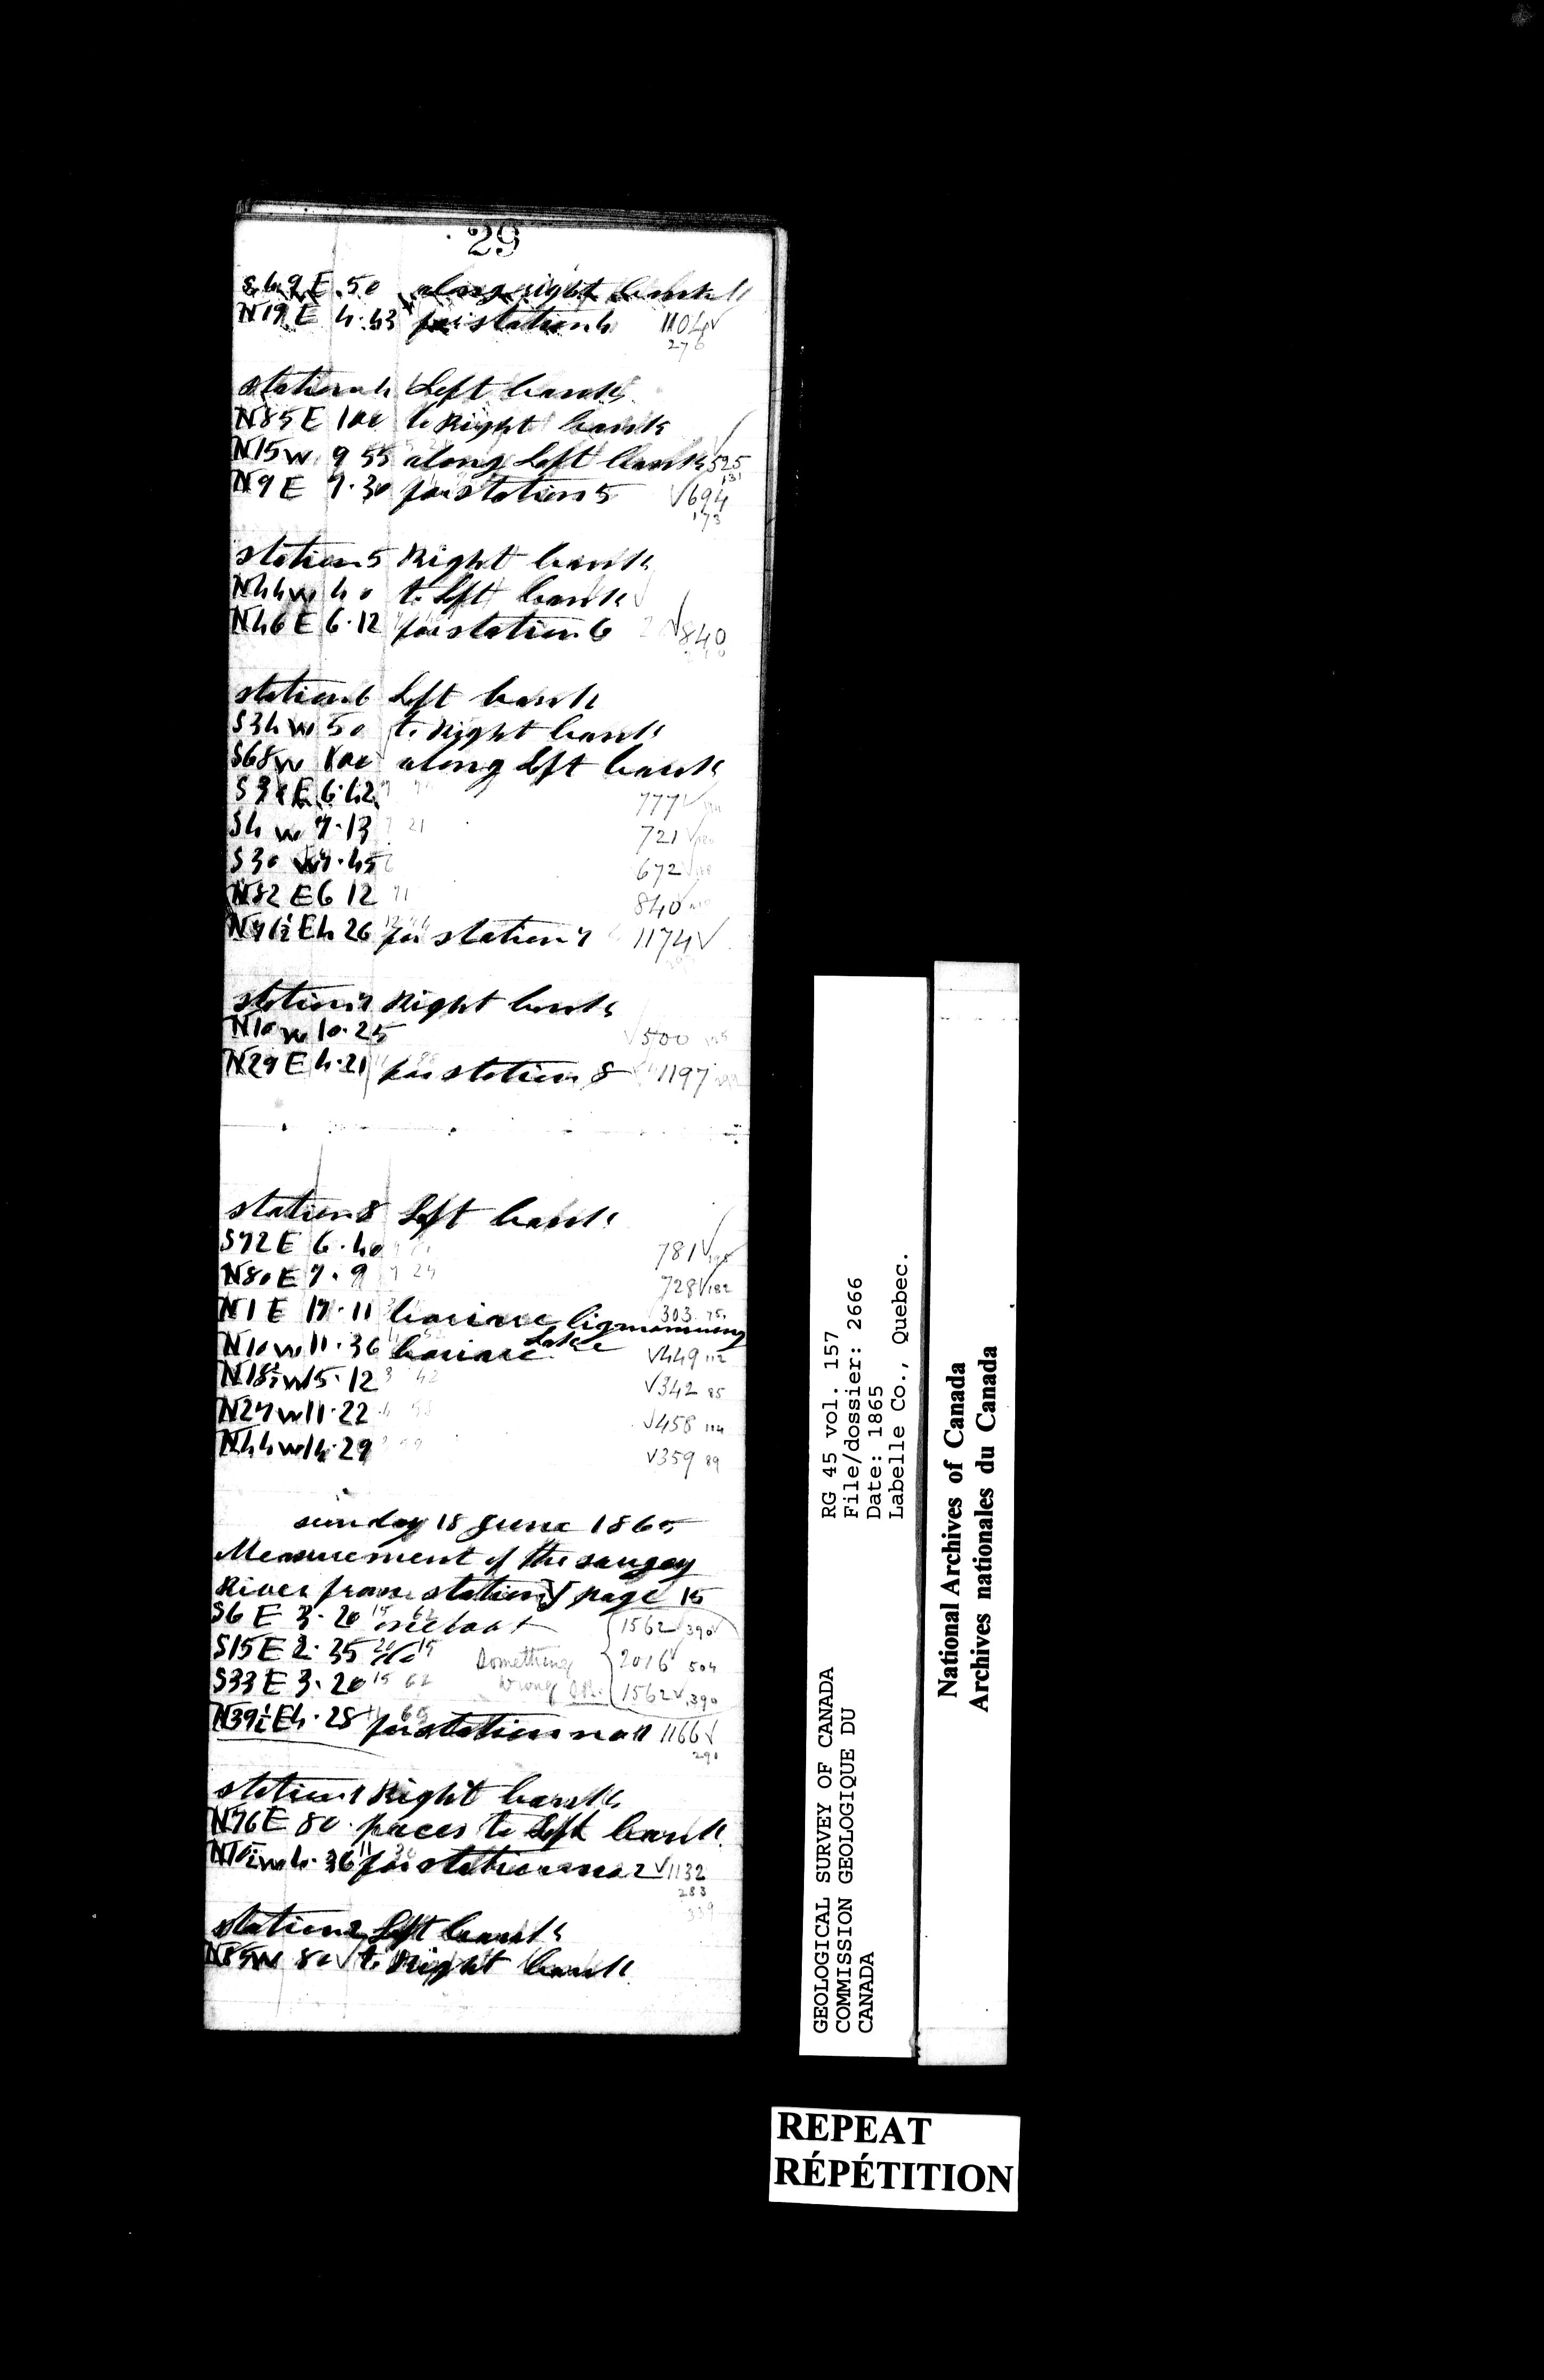 29
S 49 E 50 along right bank
N 19 E 4.43 for station 4 1104 √
276
station 4 Left bank
N 85 E 100 to Right bank
N 15 W 9 55 along Left bank 525
131
N 9 E 7.30 for station 5 √ 694
173
station 5 Right bank
N 44 W 40 to Left bank
N 46 E 6.12 for station 6 √ 840
station 6 Left bank
S 34 W 50 to Right bank
S 68 W 100 along Left bank
S 38 E 6.42 777 √
S 4 W 7.13 721 √
S 30 W 7.45 672 √
N 82 E 6 12 840
N 76½ E 4 26 for station 7 1174 √
station 7 Right bank
N 10 W 10.25 √ 500
N 29 E 4.21 for station 8 1197
station 8 Left bank
S 72 E 6.40 781 √ 195
N 80 E 7.9 728 √ 182
N 1 E 17.11 303 75
N 10 W 11.36 Lake √ 449 112
N 18½ W 15.12 √ 342 85
N 27 W 11.22 √ 458 114
N 44 W 14.29 √ 359 89
sunday 18 June 1865
Measurement of the saugay
River from station page 15
S 6 E 3.20 15 62 1562 √ 390 √
S 15 E 2.35 20 15 Something 2016 √ 504
S 33 E 3.20 15 62 wrong 1562 √ 390
N 39½ E 4.28 for station no 1 1166 √
291
station 1 Right bank
N 76 E 80 paces to Left bank
W 4.36 for station no 2 √ 1132
283
339
station 2 Left bank
N 85 W 80 √ to Right bank
RG 45 vol. 157
File/dossier: 2666
Date: 1865
Labelle Co., Quebec.
GEOLOGICAL SURVEY OF CANADA
COMMISSION GEOLOGIQUE DU
CANADA
National Archives of Canada
Archives nationales du Canada
REPEAT
RÉPÉTITION